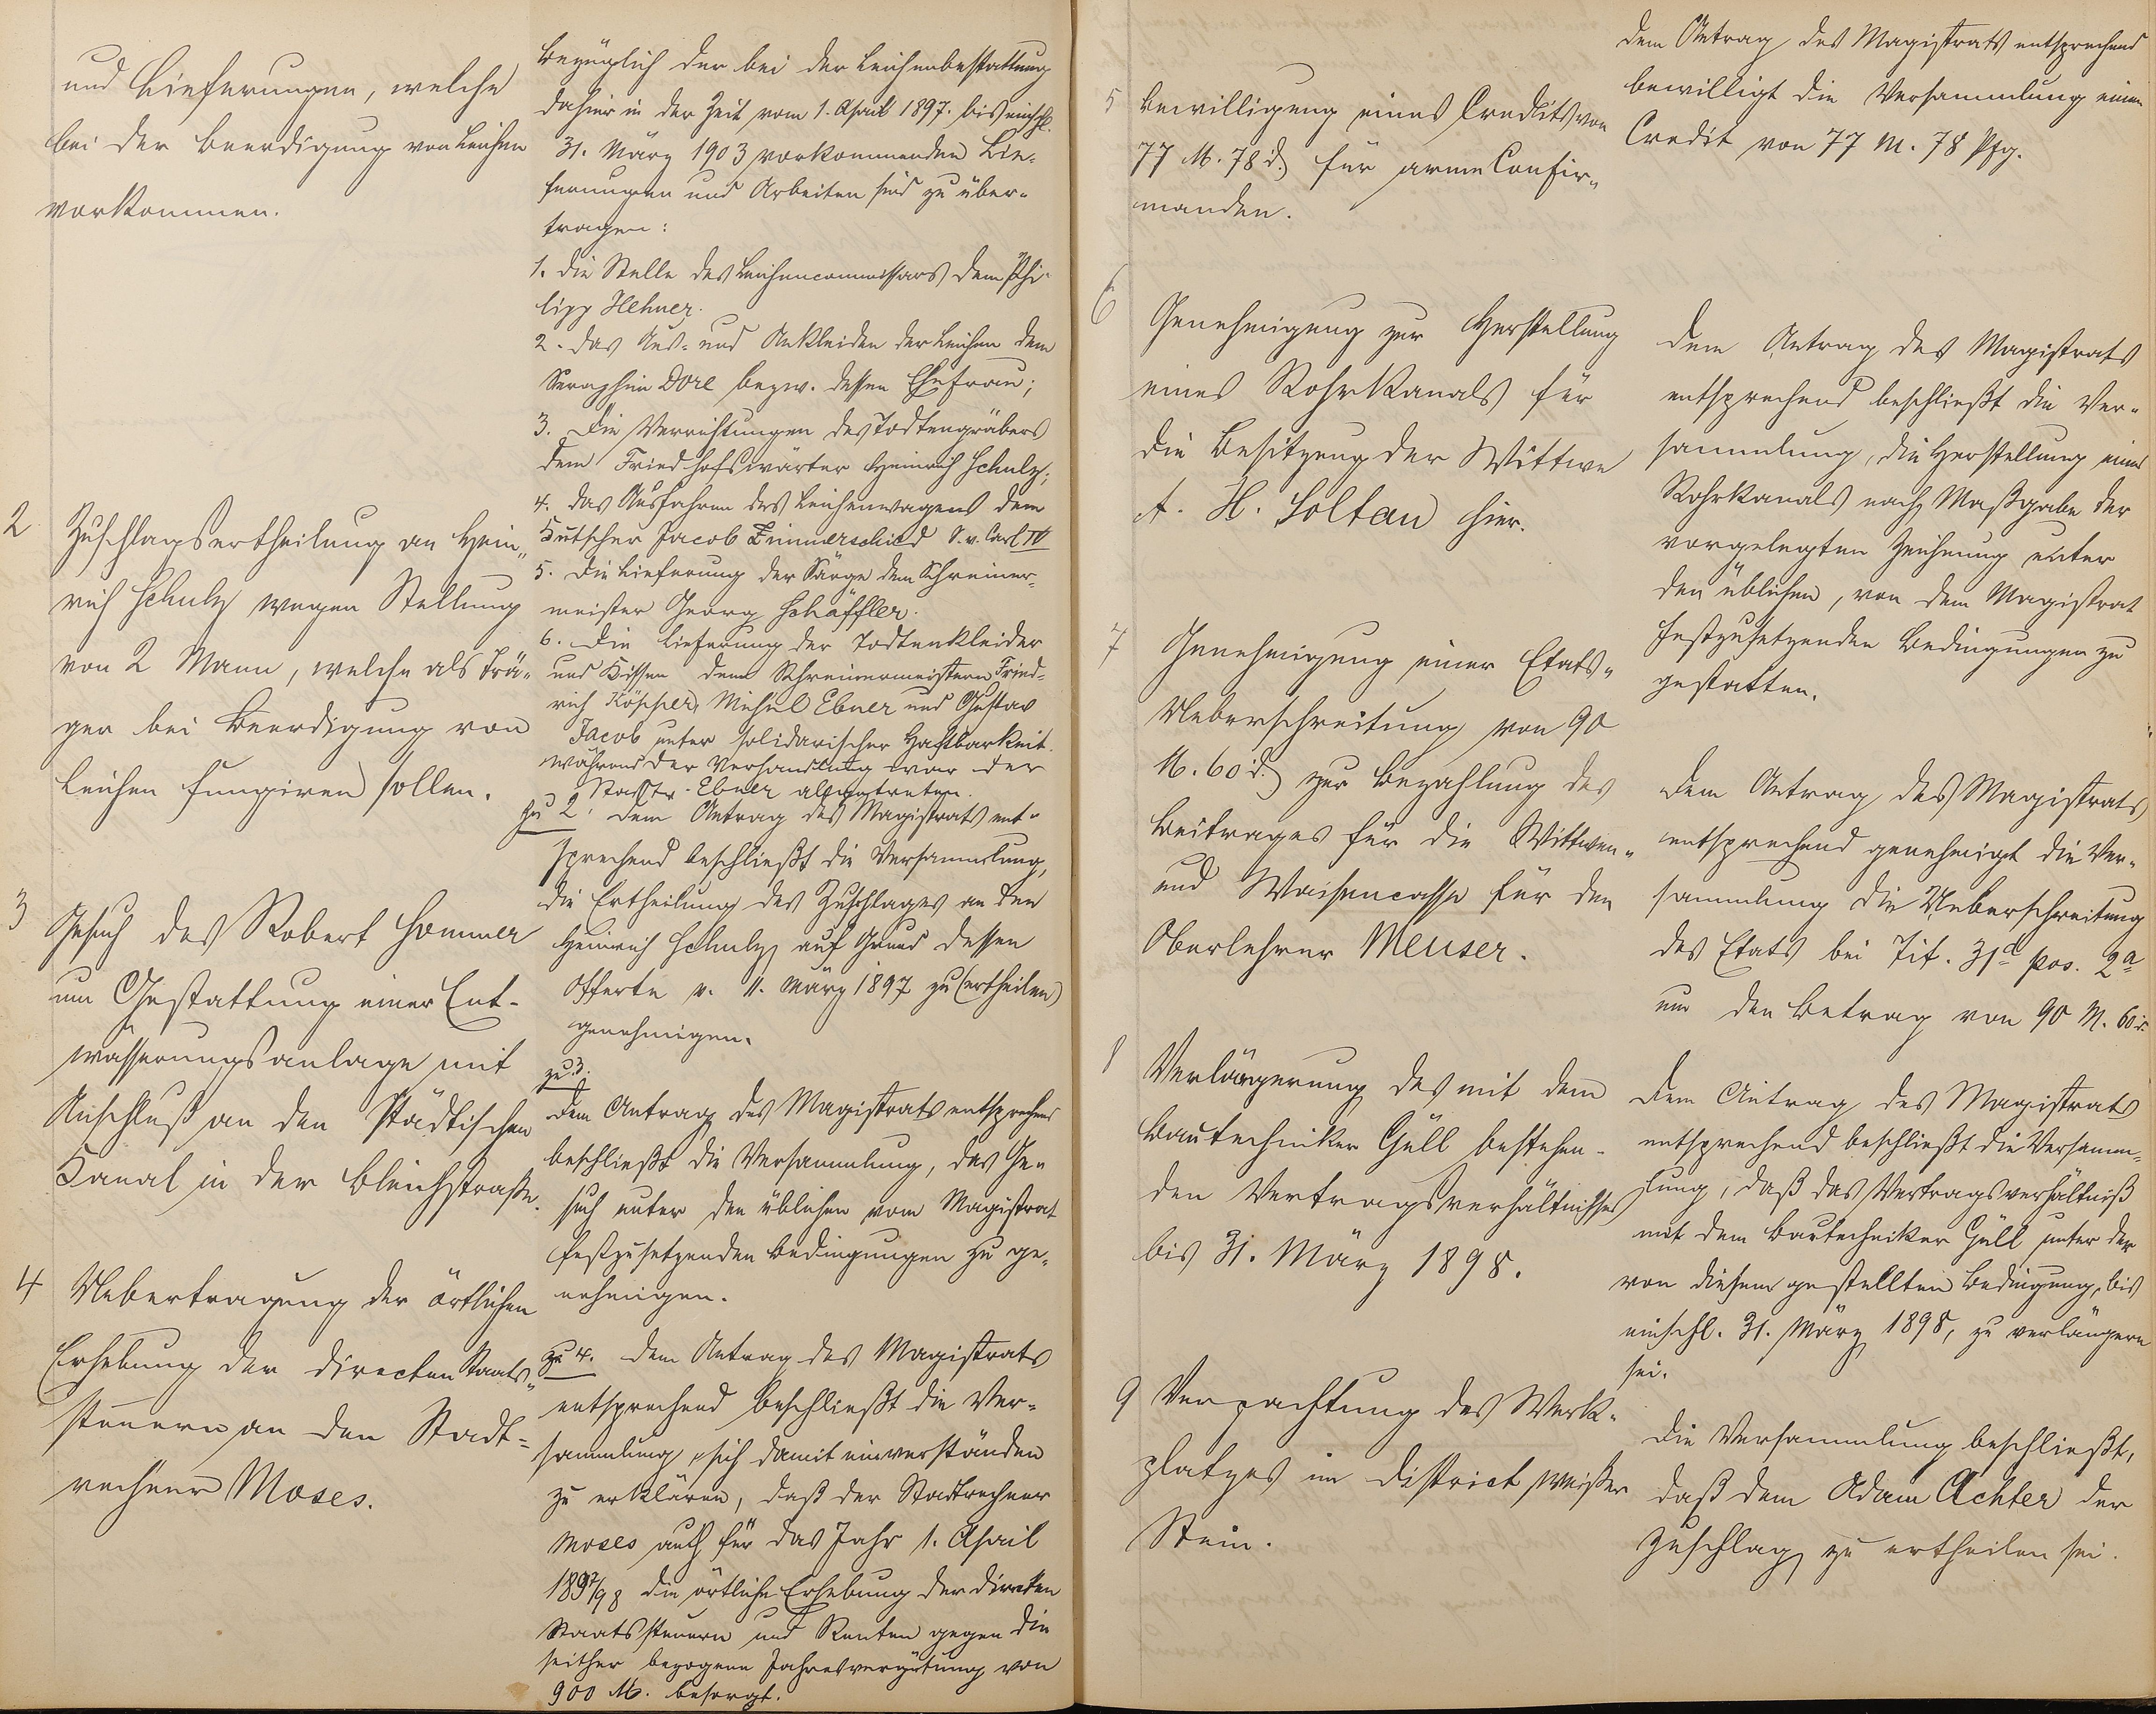 und Lieferungen, welche
bei der Beerdigung von Leichen
vorkommen.
bezüglich der bei der Leichenbestattung
dahier in der Zeit vom 1. April 1897. bis einschl.
31. März 1903 vorkommenden Lie-
ferungen und Arbeiten sind zu über-
tragen:
1. die Stelle des Leichencommissars dem Phi-
lipp Hehner.
2. das Aus- und Ankleiden der Leichen dem
Seraphim Dore bezw. dessen Ehefrau;
3. die Verrichtungen des Todtengräbers
dem Friedhofswärter Heinrich Schulz;
4. das Ausfahren des Leichenwagens dem
Kutscher Jacob Zimmerschied S. v. Carl IV
5. die Lieferung der Särge dem Schreiner-
meister Georg Schäffler.
6. die Lieferung der Todtenkleider
und Kissen dem Schreinermeistern Fried-
rich Köpper, Michel Ebner und Gustav
Jacob unter solidarischer Haftbarkeit.
während der Verhandlung war der
Stadtv. Ebner abgetreten.
2 Zuschlagsertheilung an Hein-
rich Schulz wegen Stellung
von 2 Mann, welche als Trä-
ger bei Beerdigung von
Leichen fungiren sollen.
zu 2. dem Antrag des Magistrats ent-
sprechend beschließt die Versammlung,
die Ertheilung des Zuschlages an den
Heinrich Schulz auf Grund dessen
Offerte v. 11. März 1897 zu (ertheilen)
genehmigen.
3 Gesuch des Robert Sommer
um Gestattung einer Ent-
wässerungsanlage mit
Anschluß an den Städtischen
Kanal in der Bleichstraße.
zu 3.
dem Antrag des Magistrats entsprechend
beschließt die Versammlung, das Ge-
such unter den üblichen vom Magistrat
festzusetzenden Bedingungen zu ge-
nehmigen.
4 Uebertragung der örtlichen
Erhebung der directen Staats-
steuern an den Stadt-
rechner Moses.
zu 4. dem Antrag des Magistrats
entsprechend beschließt die Ver-
sammlung, sich damit einverstanden
zu erklären, daß der Stadtrechner
Moses auch für das Jahr 1. April
1897/98 die örtliche Erhebung der directen
Staatssteuern und Renten gegen die
seither bezogene Jahresvergütung von
900 M. besorgt.
5 Bewilligung eines Credits von
77 M. 78 d. für arme Confir-
manden.
dem Antrag des Magistrats entsprechend
bewilligt die Versammlung einen
Credit von 77 M. 78 Pfg.
6 Genehmigung zur Herstellung
eines Rohrkanals für
die Besitzung der Wittwe
A. H. Soltau hier.
dem Antrag des Magistrats
entsprechend beschließt die Ver-
sammlung, die Herstellung eines
Rohrkanals nach Maßgabe der
vorgelegten Zeichnung unter
den üblichen, von dem Magistrat
festzusetzenden Bedingungen zu
gestatten.
7 Genehmigung einer Etats-
Ueberschreitung von 90
M. 60 d. zur Bezahlung des
Beitrages für die Wittwen-
und Waisencasse für den
Oberlehrer Meuser.
dem Antrag des Magistrats
entsprechend genehmigt die Ver-
sammlung die Ueberschreitung
des Etats bei Tit. 31d pos. 2a
um den Betrag von 90 M. 60 d.
8 Verlängerung des mit dem
Bautechniker Güll bestehen-
den Vertragsverhältnisses
bis 31. März 1898.
dem Antrag des Magistrats
entsprechend beschließt die Versamm-
lung, daß das Vertragsverhältniß
mit dem Bautechniker Güll unter der
von diesem gestellten Bedingung, bis
einschl. 31. März 1898, zu verlängern
sei.
9 Verpachtung des Werk-
platzes im District weißer
Stein.
die Versammlung beschließt,
daß dem Adam Achter der
Zuschlag zu ertheilen sei.